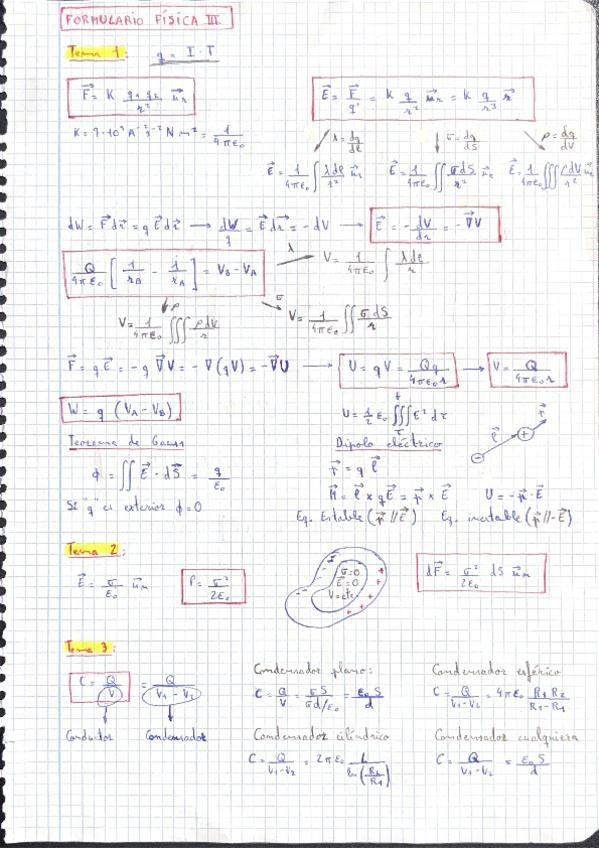 FORMULARIO FÍSICA III
Tema 1: q = I · T
F⃗ = K q₁q₂/r² u⃗r
E⃗ = F⃗/q' = K q/r² u⃗r = K q/r³ r⃗
K = 9·10⁹ A⁻²s⁻² N m² = 1/4πε₀
λ = dq/dl σ = dq/dS ρ = dq/dV
E⃗ = 1/4πε₀ ∫ λdl/r² u⃗r E⃗ = 1/4πε₀ ∬ σdS/r² u⃗r E⃗ = 1/4πε₀ ∭ ρdV/r² u⃗r
dW = F⃗dr⃗ = q E⃗dr⃗ → dW/q = E⃗dr⃗ = -dV → E⃗ = -dV/dr = -∇⃗V
Q/4πε₀ [1/rB - 1/rA] = VB - VA λ V = 1/4πε₀ ∫ λdl/r
ρ σ
V = 1/4πε₀ ∭ ρdV/r V = 1/4πε₀ ∬ σdS/r
F⃗ = qE⃗ = -q ∇⃗V = -∇(qV) = -∇⃗U → U = qV = Qq/4πε₀r → V = Q/4πε₀r
W = q (VA - VB)
U = 1/2 ε₀ ∭ E² dτ
Teorema de Gauss
Dipolo eléctrico
l⃗ p⃗
- +
ϕ = ∬ E⃗ · dS⃗ = q/ε₀
p⃗ = q l⃗
M⃗ = l⃗ × qE⃗ = p⃗ × E⃗ U = -p⃗ · E⃗
Si "q" es exterior ϕ = 0
Eq. Estable (p⃗ // E⃗) Eq. inestable (p⃗ // -E⃗)
Tema 2:
E⃗ = σ/ε₀ u⃗n
P = σ²/2ε₀
σ=0
E⃗=0
V=cte
dF⃗ = σ²/2ε₀ dS u⃗n
Tema 3:
C = Q/V = Q/V₁-V₂
Conductor Condensador
Condensador plano:
C = Q/V = σS/σd/ε₀ = ε₀S/d
Condensador esférico
C = Q/V₁-V₂ = 4πε₀ R₁R₂/R₂-R₁
Condensador cilíndrico
C = Q/V₁-V₂ = 2πε₀ L/ln(R₂/R₁)
Condensador cualquiera
C = Q/V₁-V₂ = ε₀S/d